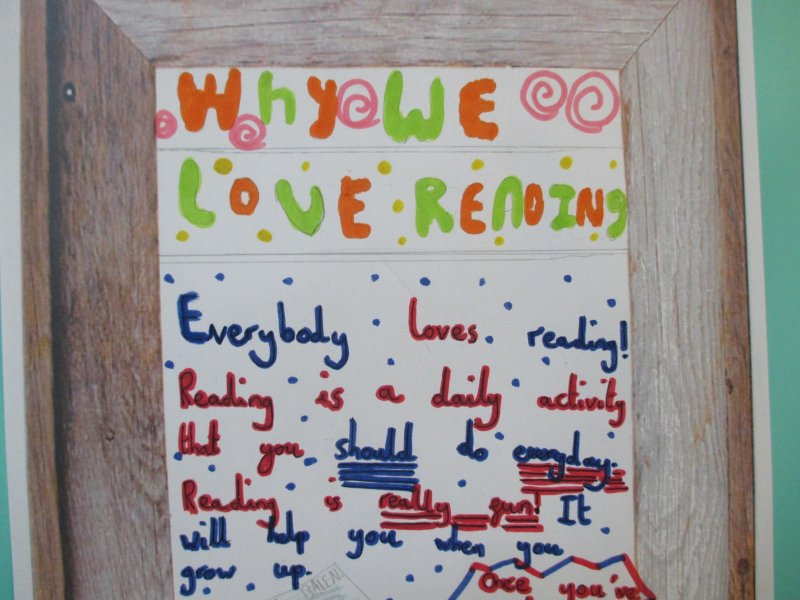 Why WE
LOVE READING
Everybody loves reading!
Reading is a daily activity
that you should do everyday.
Reading is really gun! It
will help you when you
grow up.
Once you've